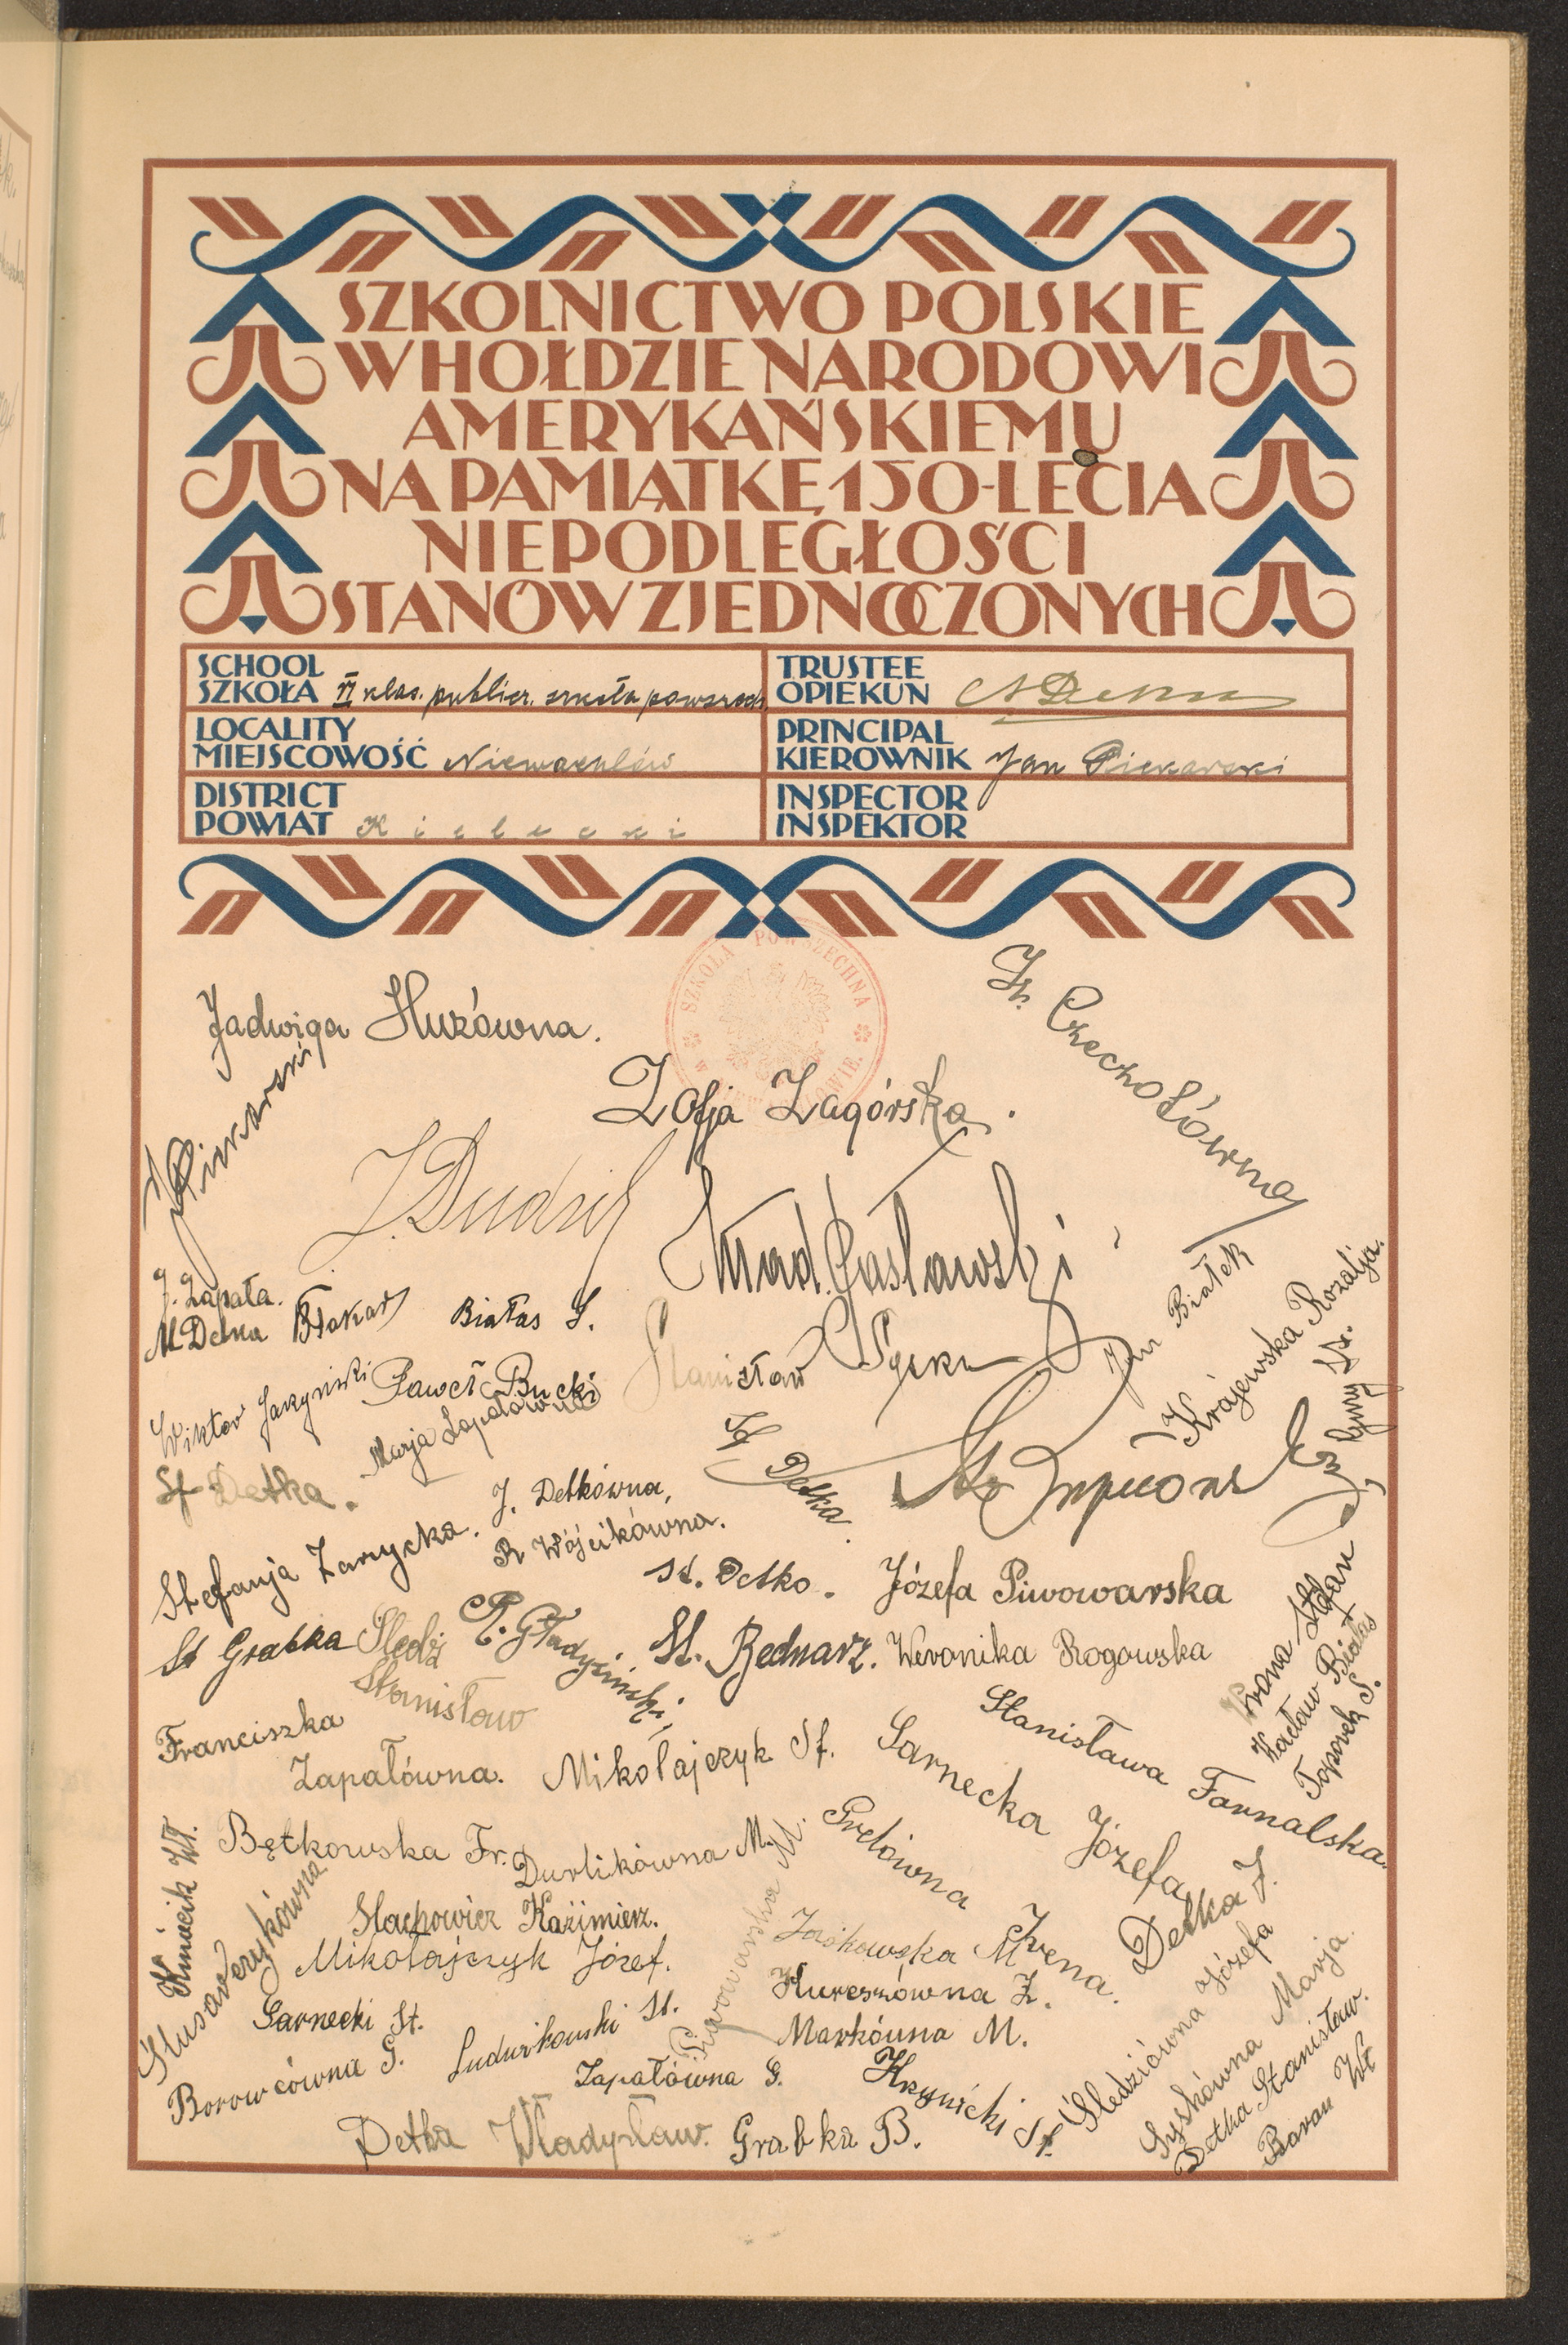 SZKOLNICTWO POLSKIE
W HOŁDZIE NARODOWI
AMERYKAŃSKIEMU
NA PAMIĄTKĘ 150-LECIA
NIEPODLEGŁOŚCI
STANÓW ZJEDNOCZONYCH
SCHOOL
SZKOŁA VI klas. publicz. szkoła powszech.
TRUSTEE
OPIEKUN
LOCALITY
MIEJSCOWOŚĆ Niewachlów
PRINCIPAL
KIEROWNIK Jan Piekarski
DISTRICT
POWIAT Kielecki
INSPECTOR
INSPEKTOR
SZKOŁA POWSZECHNA
Jadwiga Huzówna.
St. Czechołówna
Zofja Zagórska.
Piekarski
J. Dudzik
J. Zapała.
M Detka
Białas S.
Stanisław
Jan Białek
Krajewska Rozalja.
Wiktor
Paweł Bucki
Marja Zapałówna
St. Detka.
St Detka.
J. Detkówna,
R Wójcikówna.
Stefanja Zarycka.
St. Detko.
Józefa Piwowarska
St Grabka
Śledź
Stanisław
St. Bednarz.
Weronika Rogowska
Wrona Stefan
Wacław Białas
Toporek S.
Franciszka
Zapałówna.
Mikołajczyk St.
Stanisława Farnalska.
Sarnecka Józefa
Kmiecik Wł.
Bętkowska Fr.
Durlikówna M.
Piwowarska M.
Gretówna Irena.
Detka J.
Ślusarczykówna
Stachowicz Kazimierz.
Jaskowska M
Mikołajczyk Józef.
Hureszówna Z.
Sarnecki St.
Ludwikowski St.
Markówna M.
Śledziówna Józefa
Borowcówna G.
Zapałówna G.
Krzynicki St.
Syskówna Marja.
Detka Stanisław.
Detka Władysław.
Grabka B.
Baran Wł